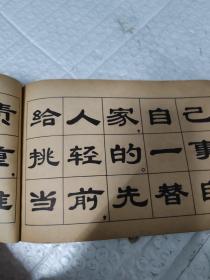 责
重,
推
给人家,自己
挑轻的。一事
当前,先替自